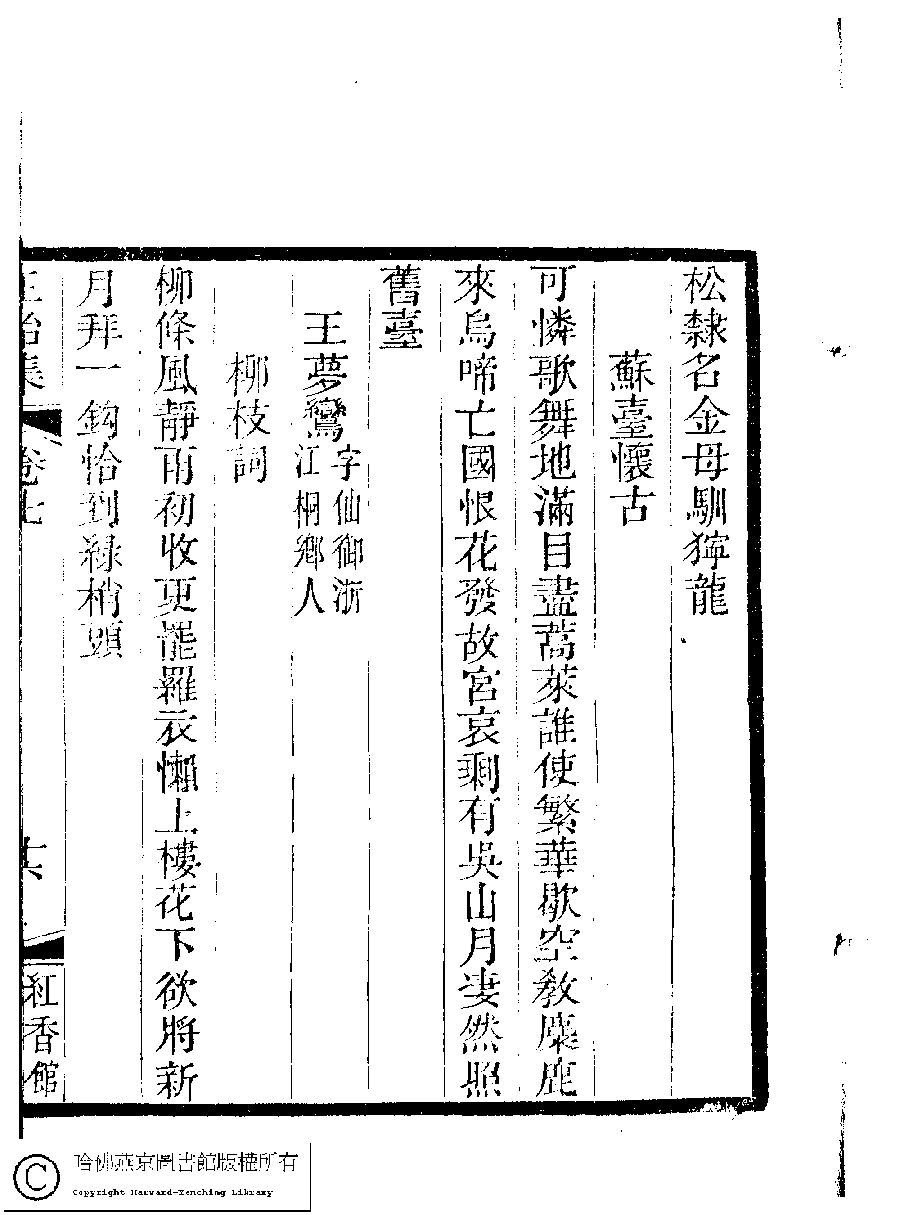 松隸名金母馴獰龍
蘇臺懷古
可憐歌舞地滿目盡蒿萊誰使繁華歇空教麋鹿
來烏啼亡國恨花發故宮哀剩有吳山月淒然照
舊臺
王夢鸞字仙御浙
江桐鄉人
柳枝詞
柳條風靜雨初收更罷羅衣懶上樓花下欲將新
月拜一鈎恰到綠梢頭
正始集
卷七
紅香館
哈佛燕京圖書館版權所有
Copyright Harvard-Yenching Library